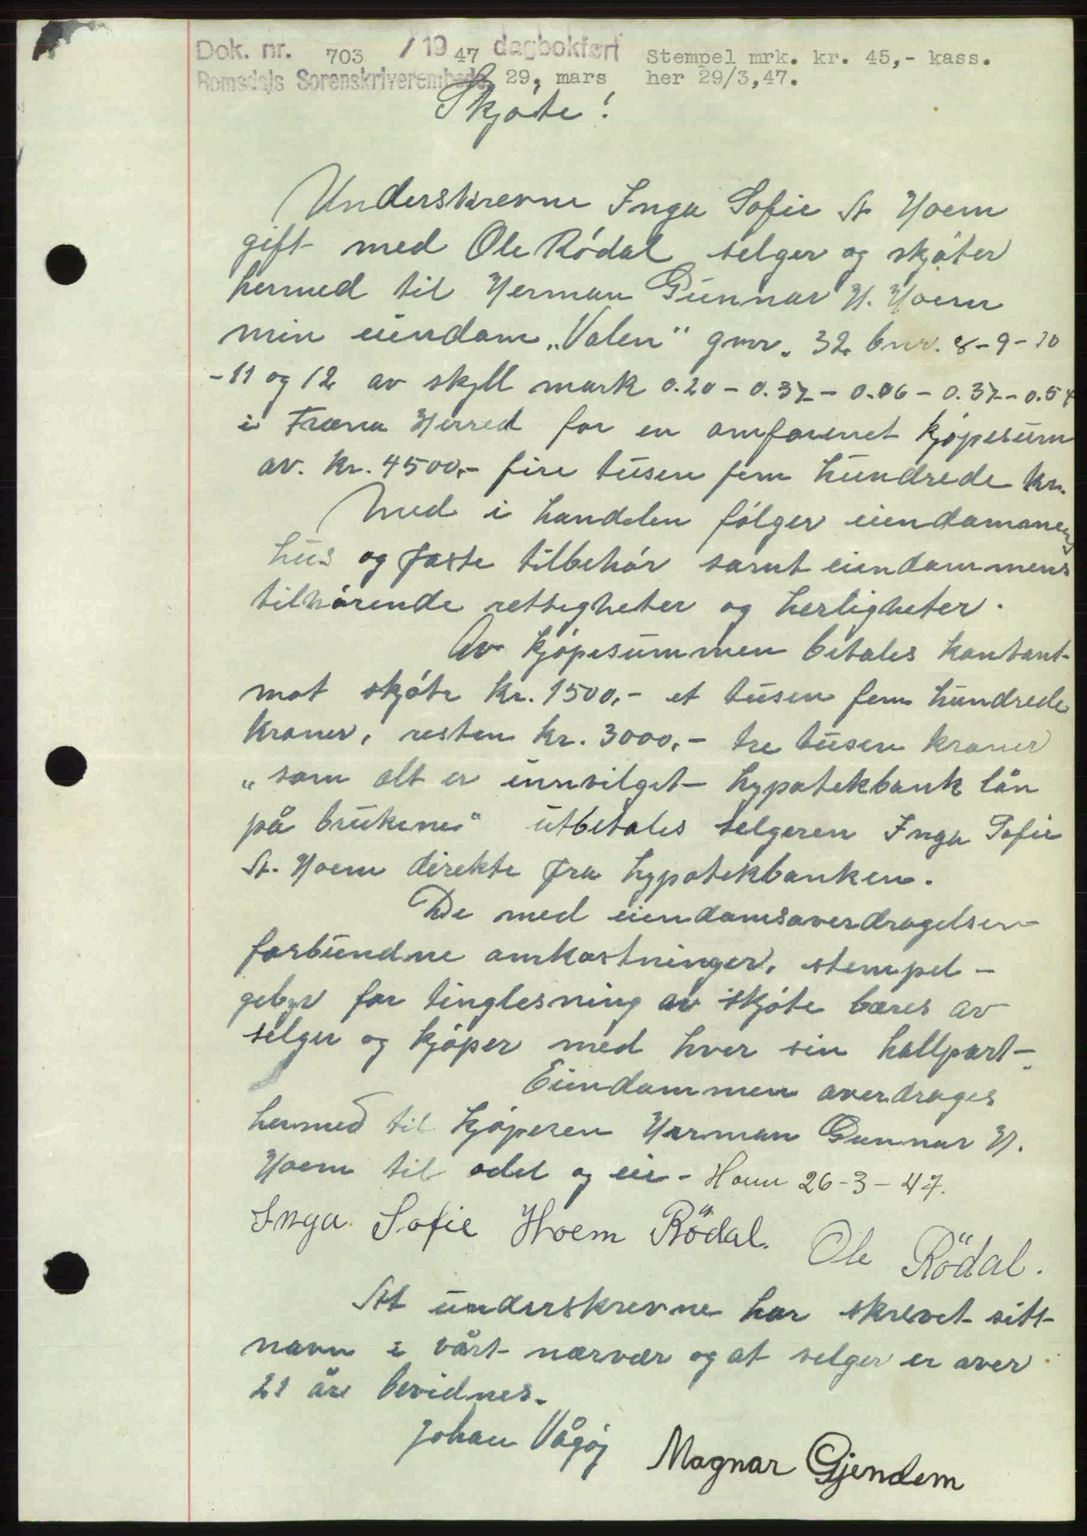 Dok. nr. 703 / 19 47 dagbokført Stempel mrk. kr. 45,- kass.
Romsdals Sorenskriverembede 29, mars her 29/3,47.
Skjøte!
Underskrevne Inga Sofie A. Hoem
gift med Ole Rødal selger og skjøter
hermed til Herman Gunnar H. Hoem
min eiendom „Valen“ gnr. 32 bnr. 8-9-10
-11 og 12 av skyll mark 0.20 - 0.37 - 0.06 - 0.37 - 0.54
i Fræna Herred for en omforenet kjøpesum
av. kr. 4500,- fire tusen fem hundrede kr.
Med i handelen følger eiendomanens
hus og faste tilbehør samt eiendommens
tilhørende rettigheter og herligheter.
Av kjøpesummen betales kontant
mot skjøte kr. 1500,- et tusen fem hundrede
kroner, resten kr. 3000,- tre tusen kroner
„som alt er innvilget hypotekbank lån
på brukene“ utbetales selgeren Inga Sofie
A. Hoem direkte fra hypotekbanken.
De med eiendomsoverdragelsen
forbundne omkostninger, stempel-
gebyr for tinglesning av skjøte bæres av
selger og kjøper med hver sin hallpart.
Eiendommen overdrages
hermed til kjøperen Herman Gunnar H.
Hoem til odel og eie - Hoem 26-3-47.
Inga Sofie Hoem Rödal. Ole Rödal.
At underskrevne har skrevet sitt
navn i vårt nærvær og at selger er over
21 år bevidnes.
Johan Vågøy Magnar Gjendem